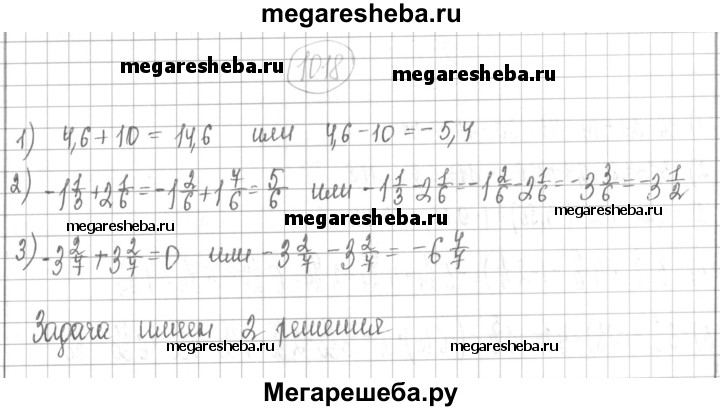 megaresheba.ru
1018
megaresheba.ru megaresheba.ru
1) 4,6 + 10 = 14,6 или 4,6 - 10 = -5,4
2) -1 1/3 + 2 1/6 = -1 2/6 + 1 7/6 = 5/6 или -1 1/3 - 2 1/6 = -1 2/6 - 2 1/6 = -3 3/6 = -3 1/2
megaresheba.ru megaresheba.ru megaresheba.ru
3) -3 2/7 + 3 2/7 = 0 или -3 2/7 - 3 2/7 = -6 4/7
Задача имеет 2 решения
megaresheba.ru megaresheba.ru
Мегарешеба.ру